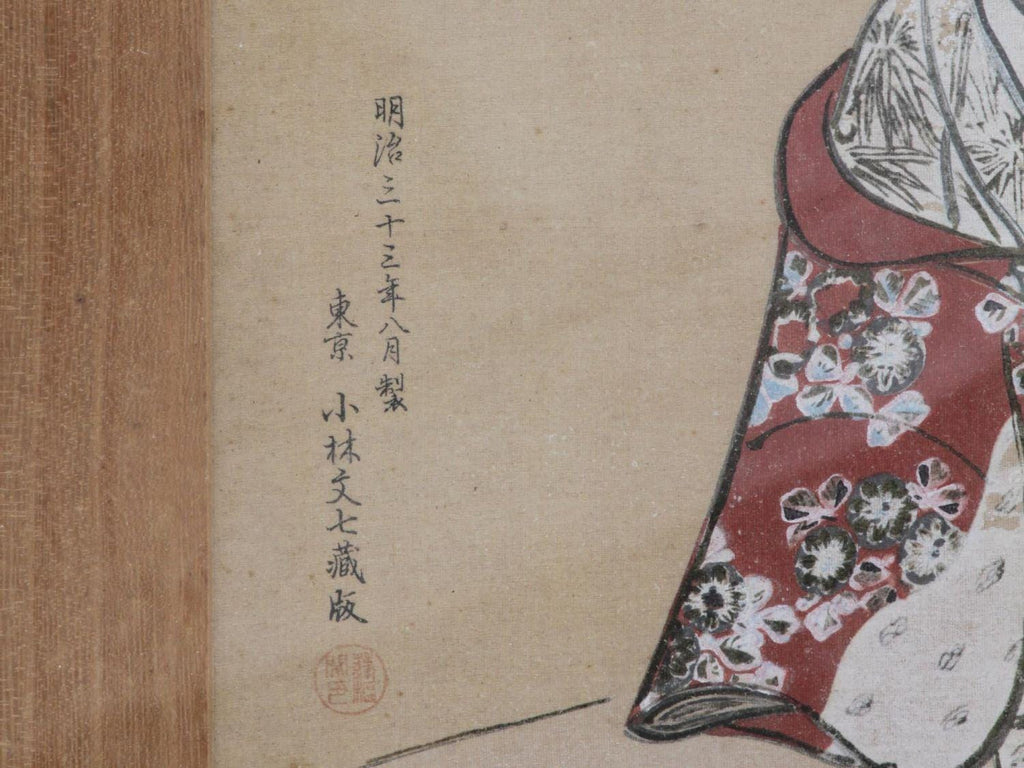 明治三十三年八月製
東京 小林文七蔵版